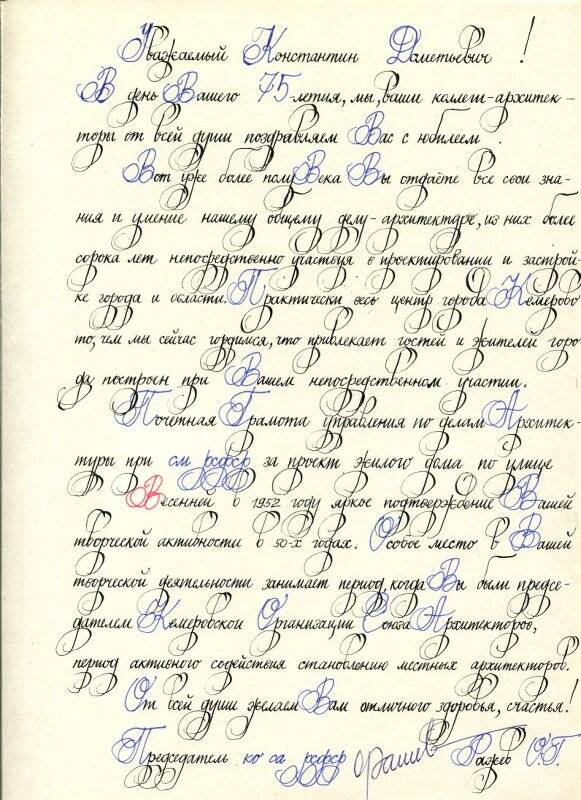 Уважаемый Константин Дометьевич!
В день Вашего 75-летия, мы, ваши коллеги-архитек-
торы от всей души поздравляем Вас с юбилеем.
Вот уже более полувека Вы отдаёте все свои зна-
ния и умение нашему общему делу - архитектуре, из них более
сорока лет непосредственно участвуя в проектировании и застрой-
ке города и области. Практически весь центр города Кемерово
то, чем мы сейчас гордимся, что привлекает гостей и жителей горо-
да построен при Вашем непосредственном участии.
Почетная Грамота управления по делам Архитек-
туры при см рсфср за проект жилого дома по улице
Весенней в 1952 году яркое подтверждение Вашей
творческой активности в 50-х годах. Особое место в Вашей
творческой деятельности занимает период, когда Вы были предсе-
дателем Кемеровской Организации Союза Архитекторов,
период активного содействия становлению местных архитекторов.
От всей души желаем Вам отличного здоровья, счастья!
Председатель ко са рсфср Ражев О.Г.